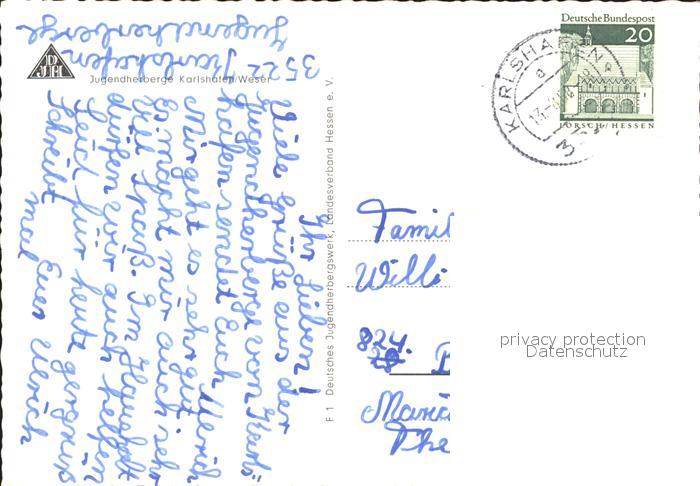 Jugendherberge
3522 Karlshafen
Ihr Lieben!
Viele Grüße aus der
Jugendherberge von Karls-
hafen sendet Euch Ulrich
Mir geht es sehr gut.
Es macht mir auch sehr
viel Spaß. Im Haushalt
dürfen wir auch helfen
Seid für heute gegrüßt
Schreibt
mal Euer Ulrich
DJH
Jugendherberge Karlshafen/Weser
F 1 Deutsches Jugendherbergswerk, Landesverband Hessen e. V.
Deutsche Bundespost
20
LORSCH / HESSEN
KARLSHAFEN
Famil
Willi
824.
Maria
The
privacy protection
Datenschutz